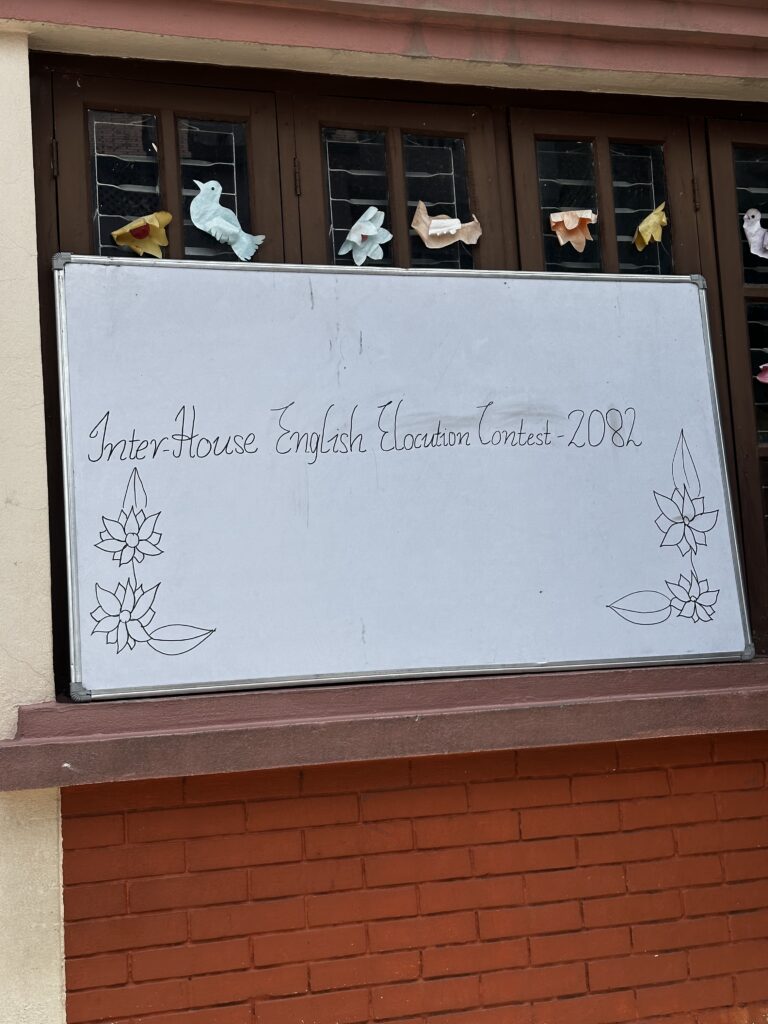 Inter-House English Elocution Contest - 2082